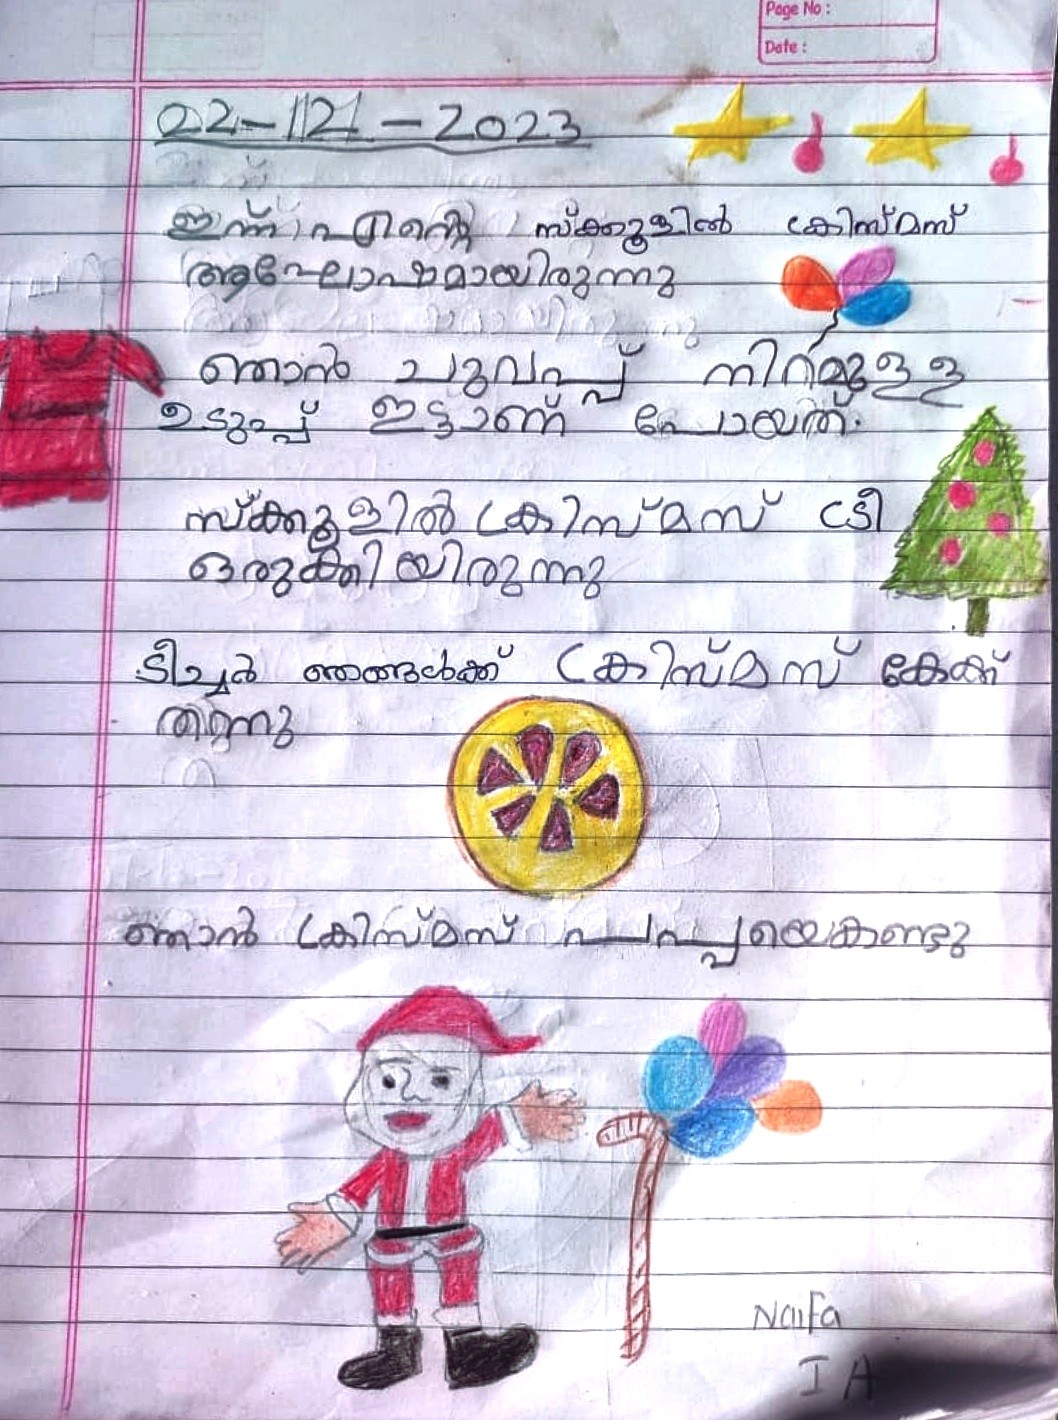 Page No :
Date :
22-12-2023
ഇന്ന് എന്റെ സ്ക്കൂളിൽ ക്രിസ്മസ്
ആഘോഷമായിരുന്നു
ഞാൻ ചുവപ്പ് നിറമുള്ള
ഉടുപ്പ് ഇട്ടാണ് പോയത്.
സ്ക്കൂളിൽ ക്രിസ്മസ് ട്രീ
ഒരുക്കിയിരുന്നു
ടീച്ചർ ഞങ്ങൾക്ക് ക്രിസ്മസ് കേക്ക്
തന്നു
ഞാൻ ക്രിസ്മസ് പപ്പയെകണ്ടു
Naifa
I A